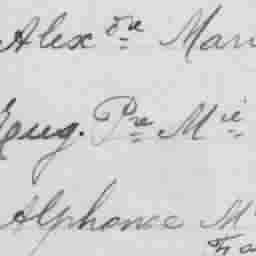 Alex dre Mari
Eug. Pre Mie
Alphonse M
Fra